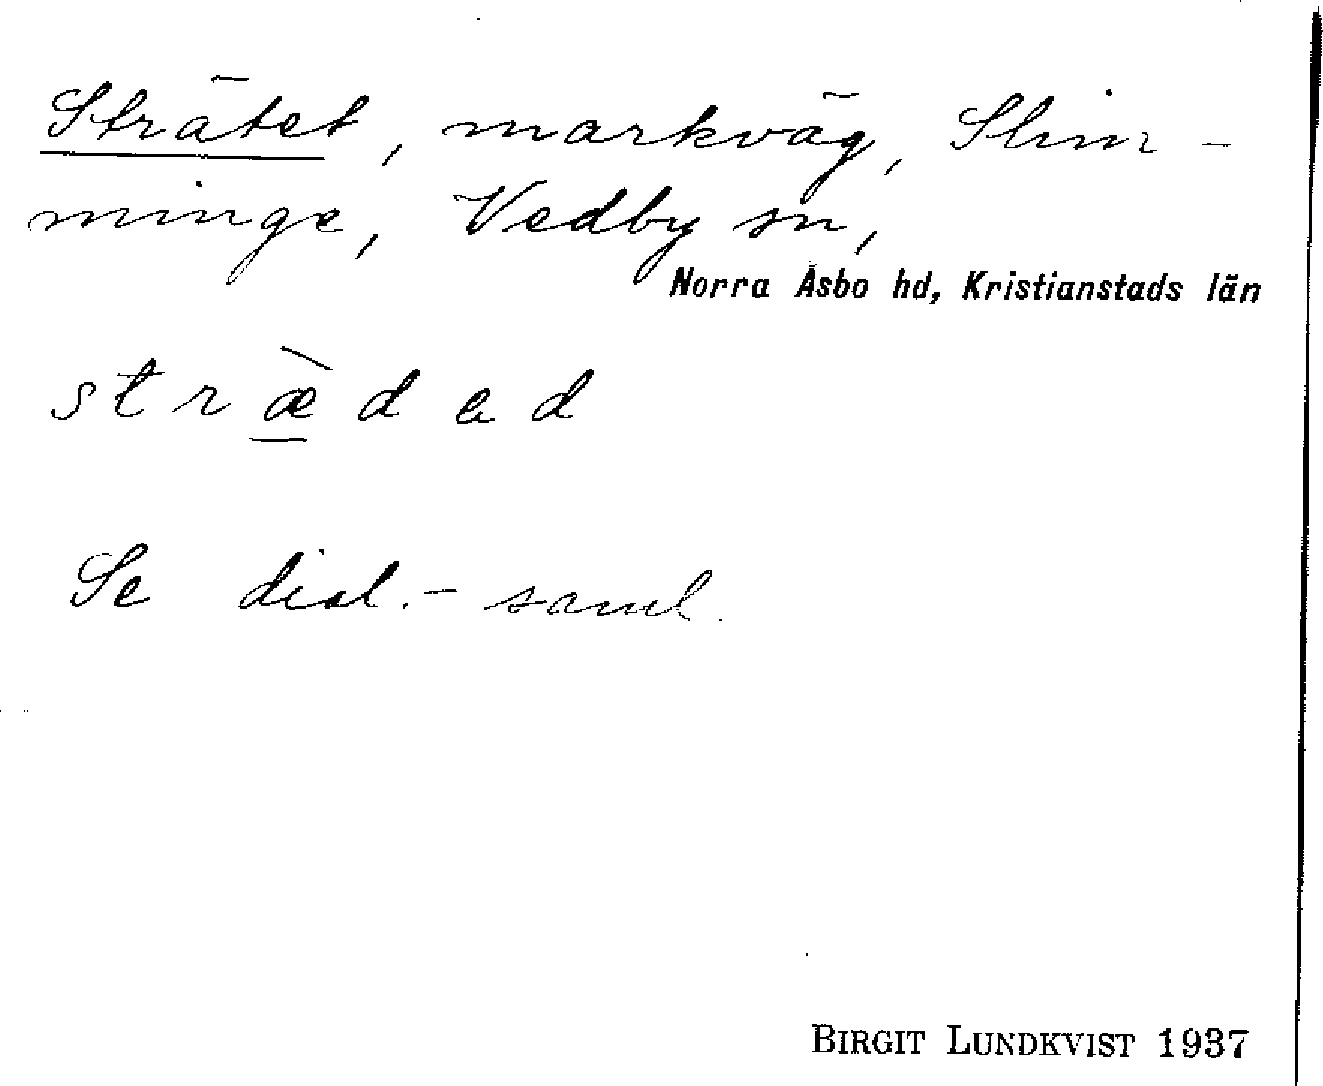 Strätet, markväg, Slim-
minge, Vedby sn,
Norra Åsbo hd, Kristianstads län
stræ̀ded
Se dial.-saml.
BIRGIT LUNDKVIST 1937